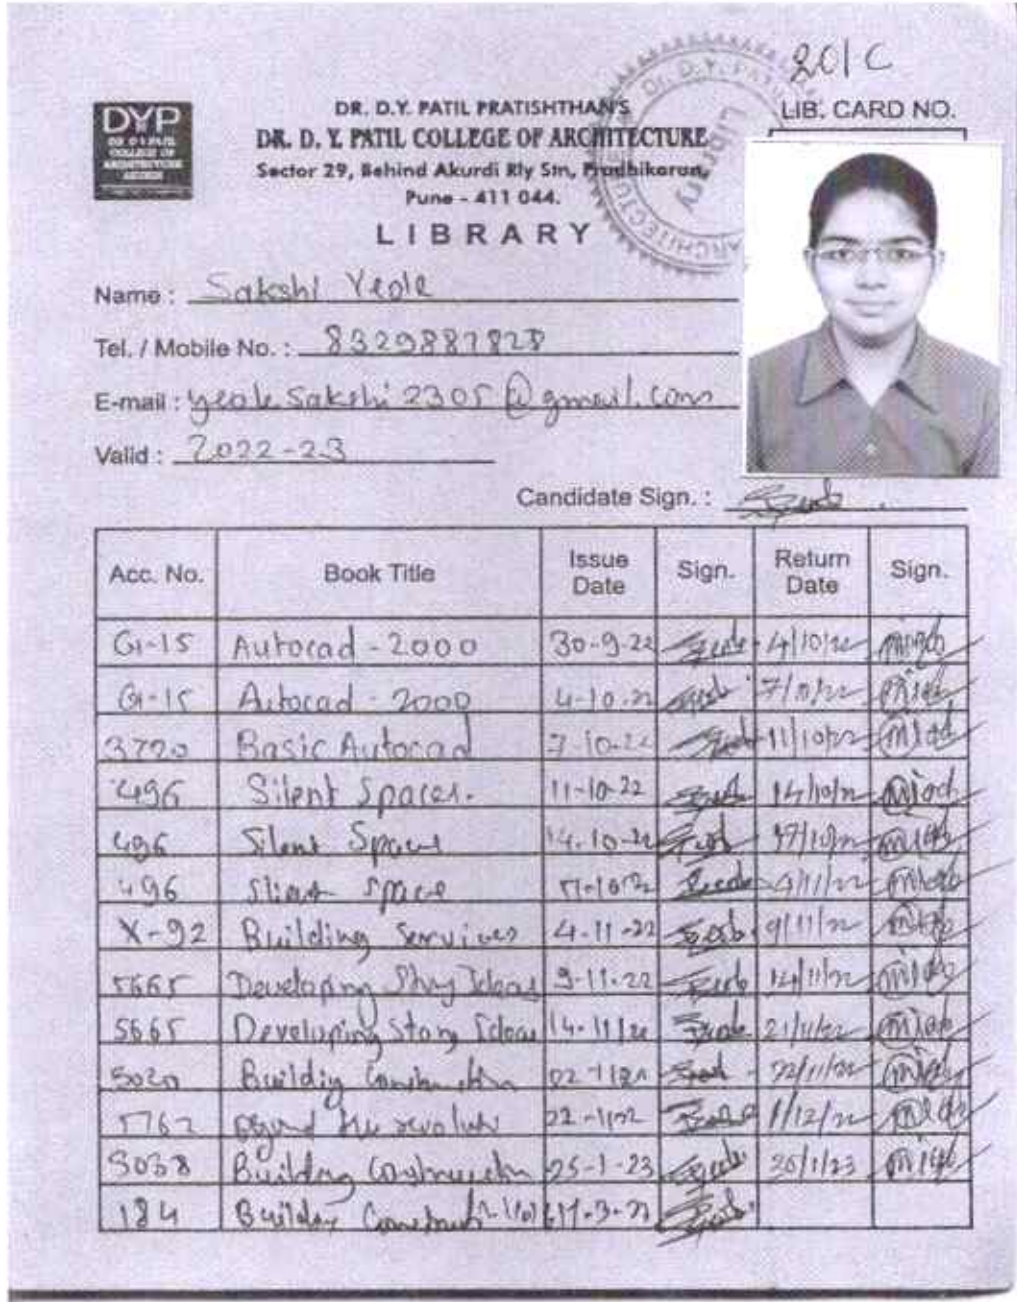 201C
DYP
DR. D Y PATIL
COLLEGE OF
ARCHITECTURE
AKURDI
DR. D.Y. PATIL PRATISHTHAN'S
DR. D. Y. PATIL COLLEGE OF ARCHITECTURE
Sector 29, Behind Akurdi Rly Stn, Pradhikaran,
Pune - 411 044.
LIBRARY
LIB. CARD NO.
Library
Name : Sakshi Yeole
Tel. / Mobile No. : 8329887828
E-mail : yeolesakshi2305@gmail.com
Valid : 2022-23
Candidate Sign. :
Acc. No. Book Title Issue Date Sign. Return Date Sign.
G-15 Autocad - 2000 30-9-22 4/10/22
G-15 Autocad - 2000 4-10-22 7/10/22
3720 Basic Autocad 7-10-22 11/10/22
496 Silent Spaces. 11-10-22 14/10/22
496 Silent Space 14-10-22 17/10/22
496 Silent Space 17-10-22 4/11/22
X-92 Building Services 4-11-22 9/11/22
5665 Developing Story Ideas 9-11-22 14/11/22
5665 Developing Story Ideas 14-11/22 21/11/22
5020 Building Construction 22/11/22
5762 22-11/22 1/12/22
5038 Building Construction 25-1-23 26/1/23
184 Building Construct